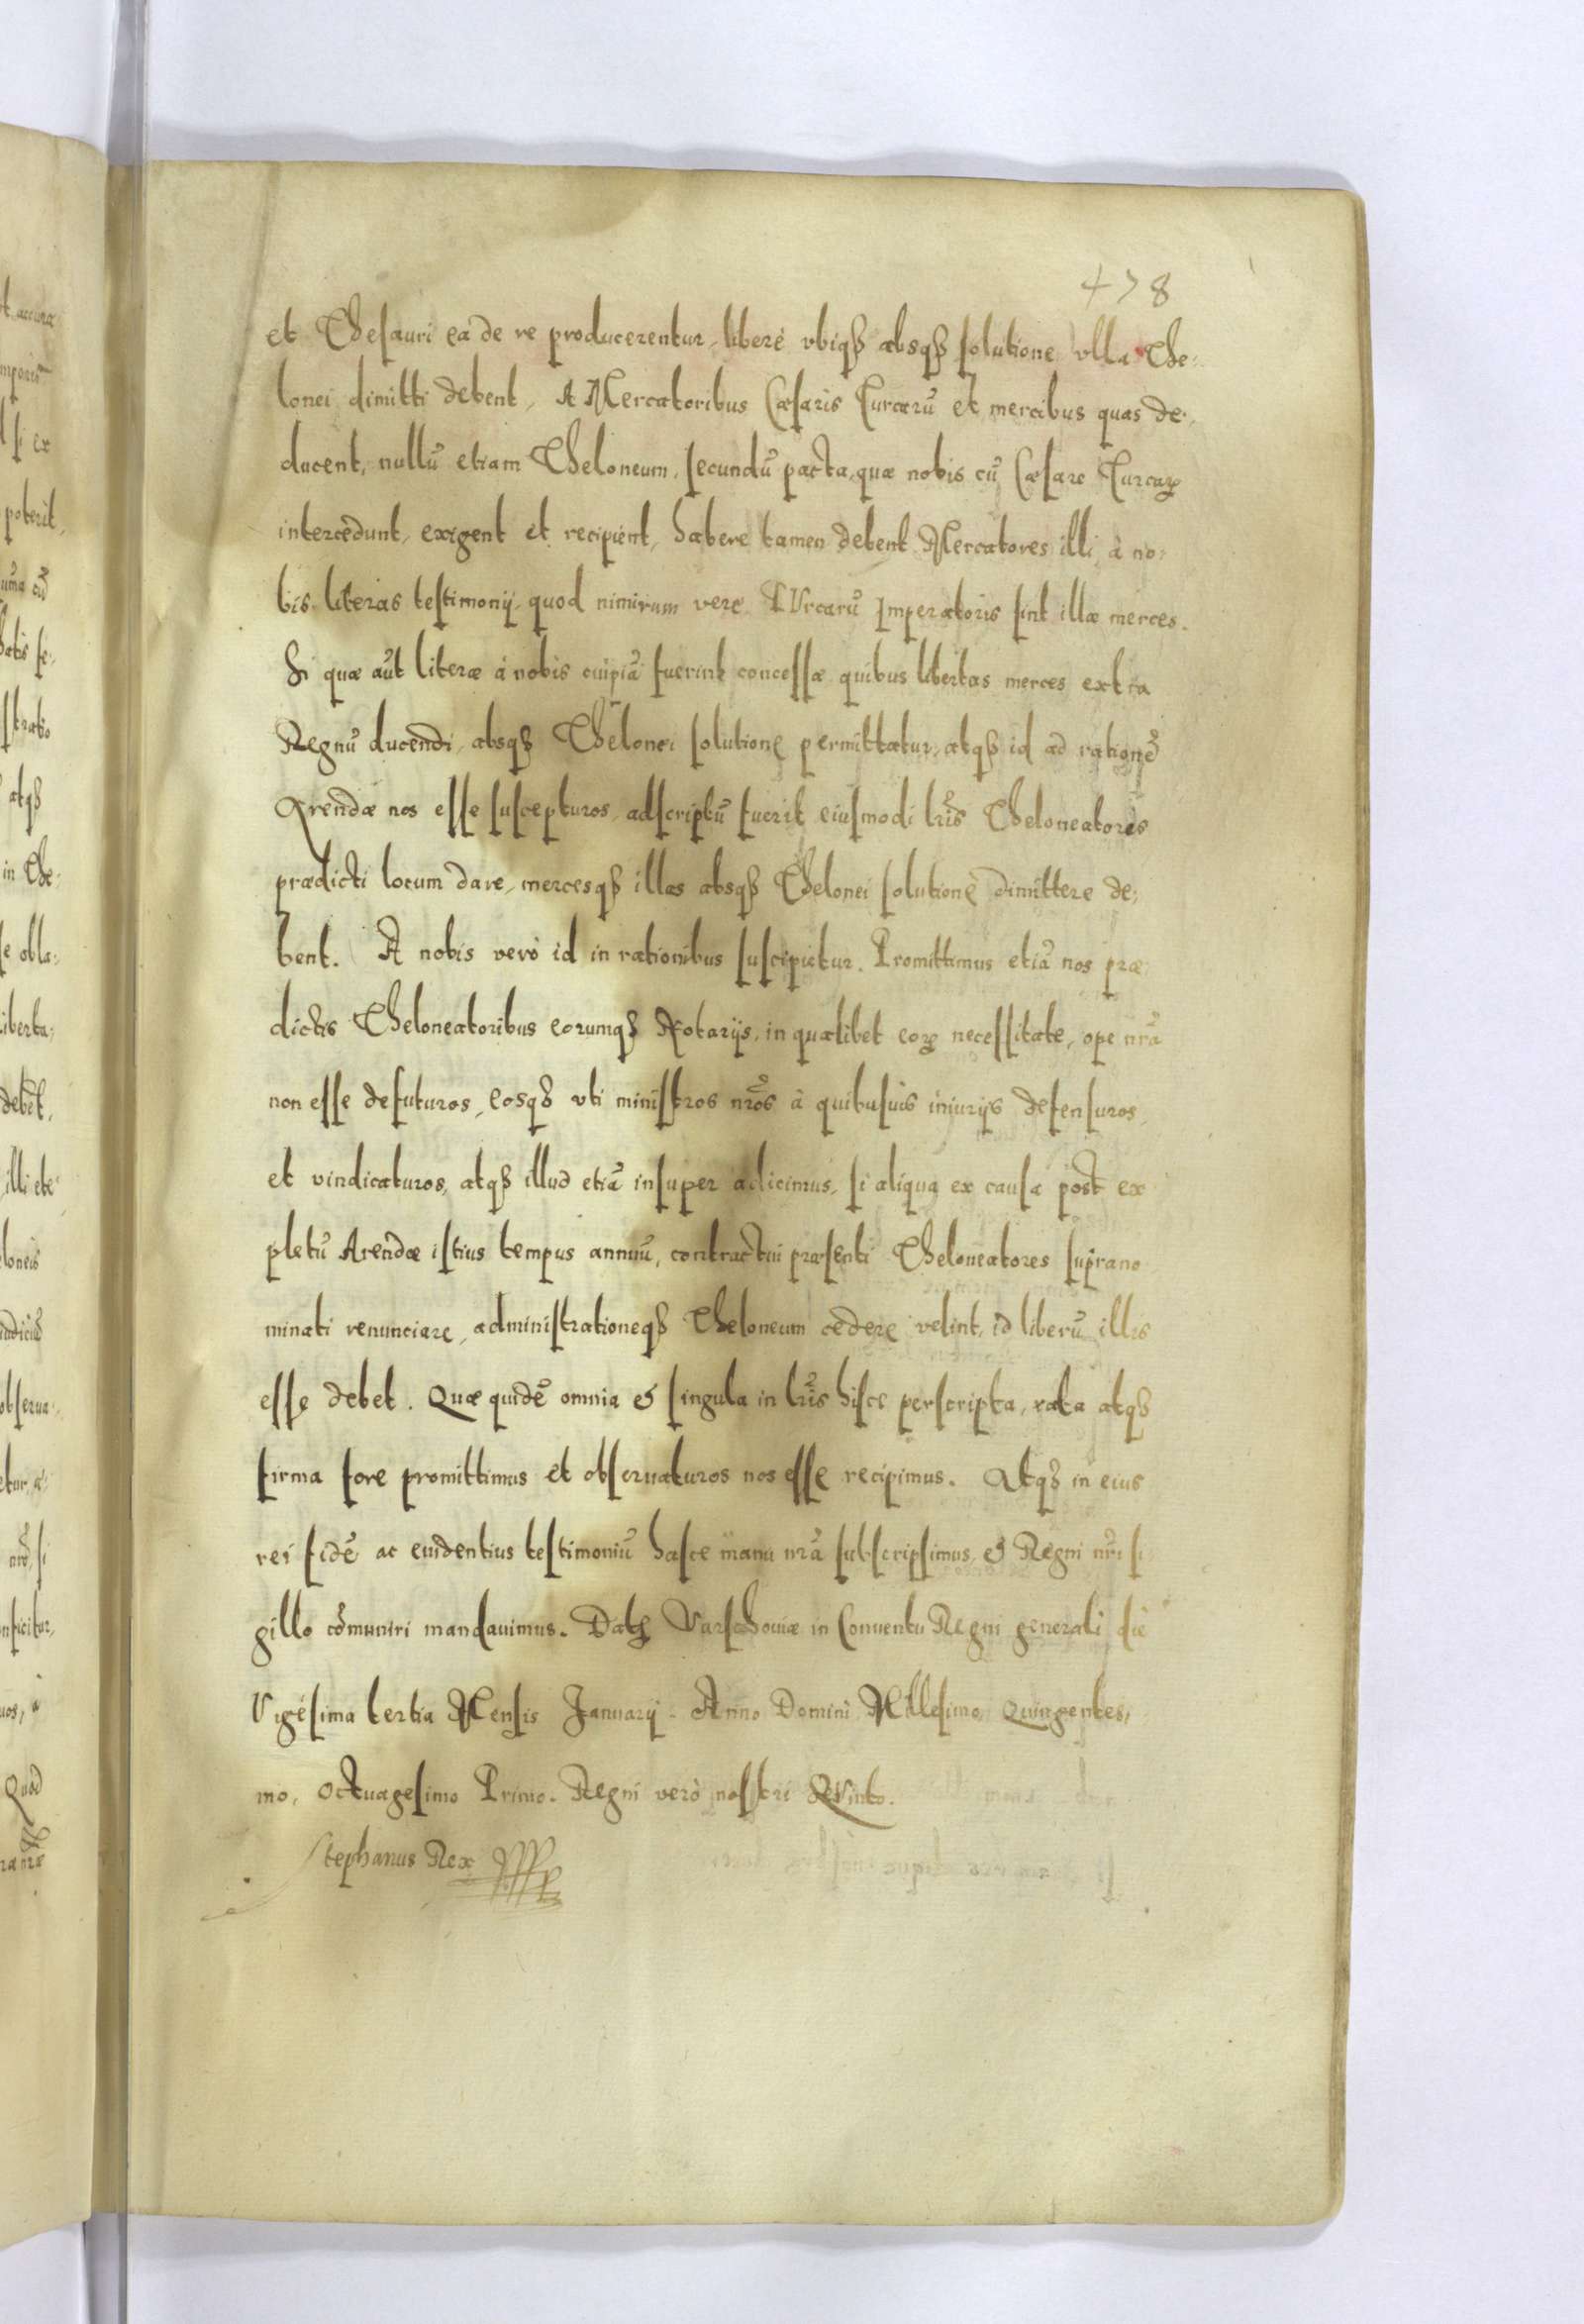 478
et Thesauri ea de re producerentur, liberè vbiqȝ absqȝ solutione vlla The:
lonei dimitti debent, A Mercatoribus Cæsaris Turcarū et mercibus quas de:
ducent, nullū etiam Theloneum, secundū pacta, quæ nobis cū Cæsare Turcaꝝ
intercedunt, exigent et recipient, habere tamen debent Mercatores illi à no:
bis literas testimonij, quod nimirum vere TVrcarū Imperatoris sint illæ merces.
Si quæ aūt literæ à nobis cuipiā fuerint concessæ quibus libertas merces extra
Regnū ducendi, absqȝ Thelonei solutione permittatur, atqȝ id ad rationē
Arendæ nos esse suscepturos, adscriptū fuerit, eiusmodi lrīs Theloneatores
prædicti locum dare, mercesqȝ illas absqȝ Thelonei solutione dimittere de:
bent. A nobis verò id in rationibus suscipietur. Promittimus etiā nos præ
dictis Theloneatoribus eorumqȝ Notarijs, in qualibet eoꝝ necessitate, ope nrā
non esse defuturos, eosqȝ vti ministros nrōs à quibusuis iniurijs defensuros,
et vindicaturos, atqȝ illud etiā insuper adicimus, si aliqua ex causa post ex
pletū Arendæ istius tempus annuū, contractui præsenti Theloneatores suprano
minati renunciare, administrationeqȝ Theloneum cedere velint, id liberū illis
esse debet. Quæ quidē omnia & singula in lrīs hisce perscripta, rata atqȝ
firma fore promittimus et obseruaturos nos esse recipimus. Atqȝ in eius
rei fidē ac euidentius testimoniū hasce manu nrā subscripsimus & Regni nrī si
gillo cōmuniri mandauimus. Datꝫ Varschouiæ in Conuentu Regni generali die
Vigesima tertia Mensis Januarij. Anno Domini Millesimo Quingentes,
mo, Octuagesimo Primo. Regni verò nostri QVinto.
Stephanus Rex